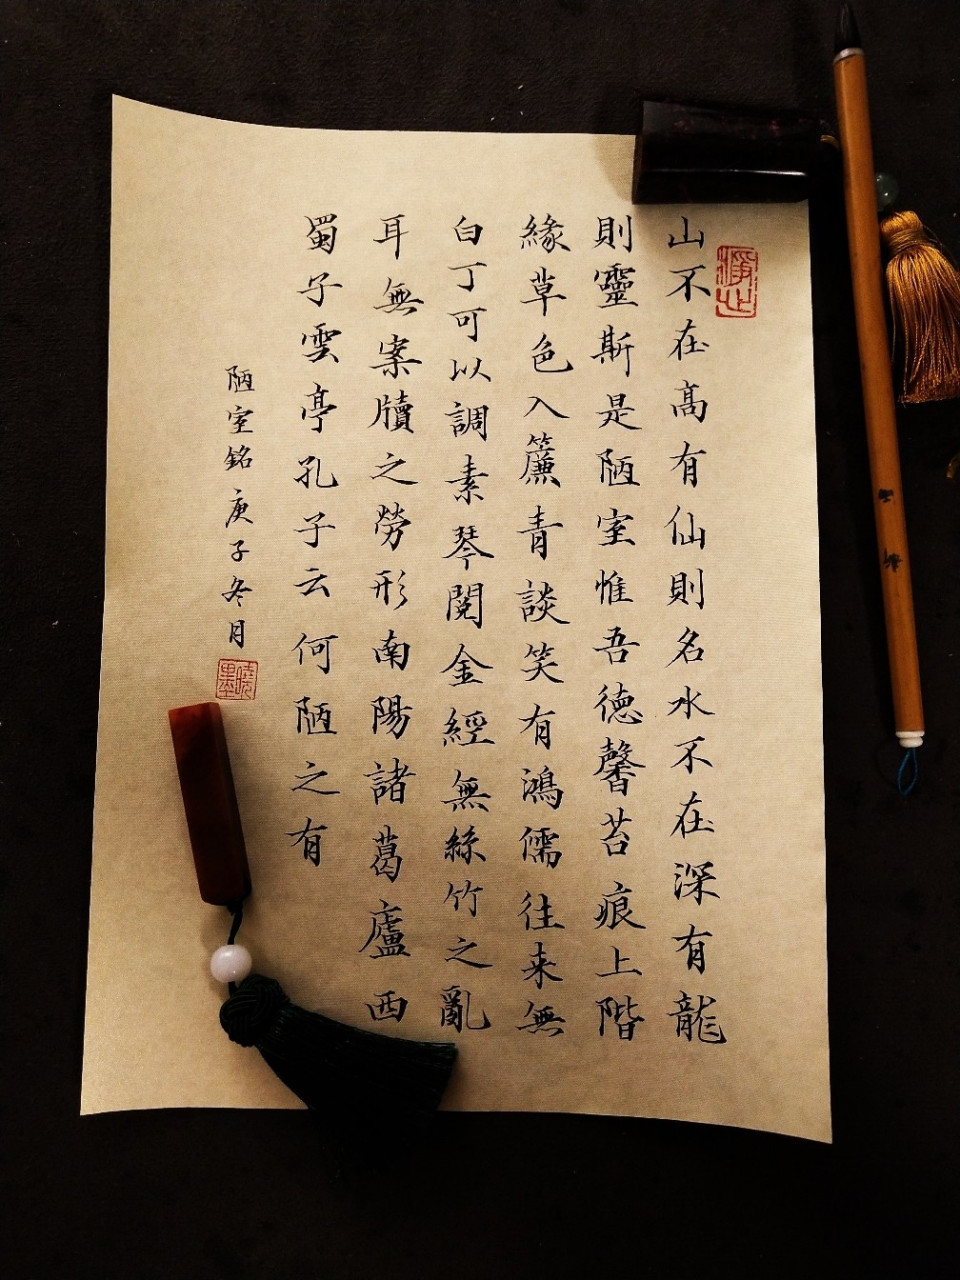 山不在高有仙則名水不在深有龍
則靈斯是陋室惟吾德馨苔痕上階
緣草色入簾青談笑有鴻儒往来無
白丁可以調素琴閱金經無絲竹之亂
耳無案牘之勞形南陽諸葛廬西
蜀子雲亭孔子云何陋之有
陋室銘庚子冬月
曉墨